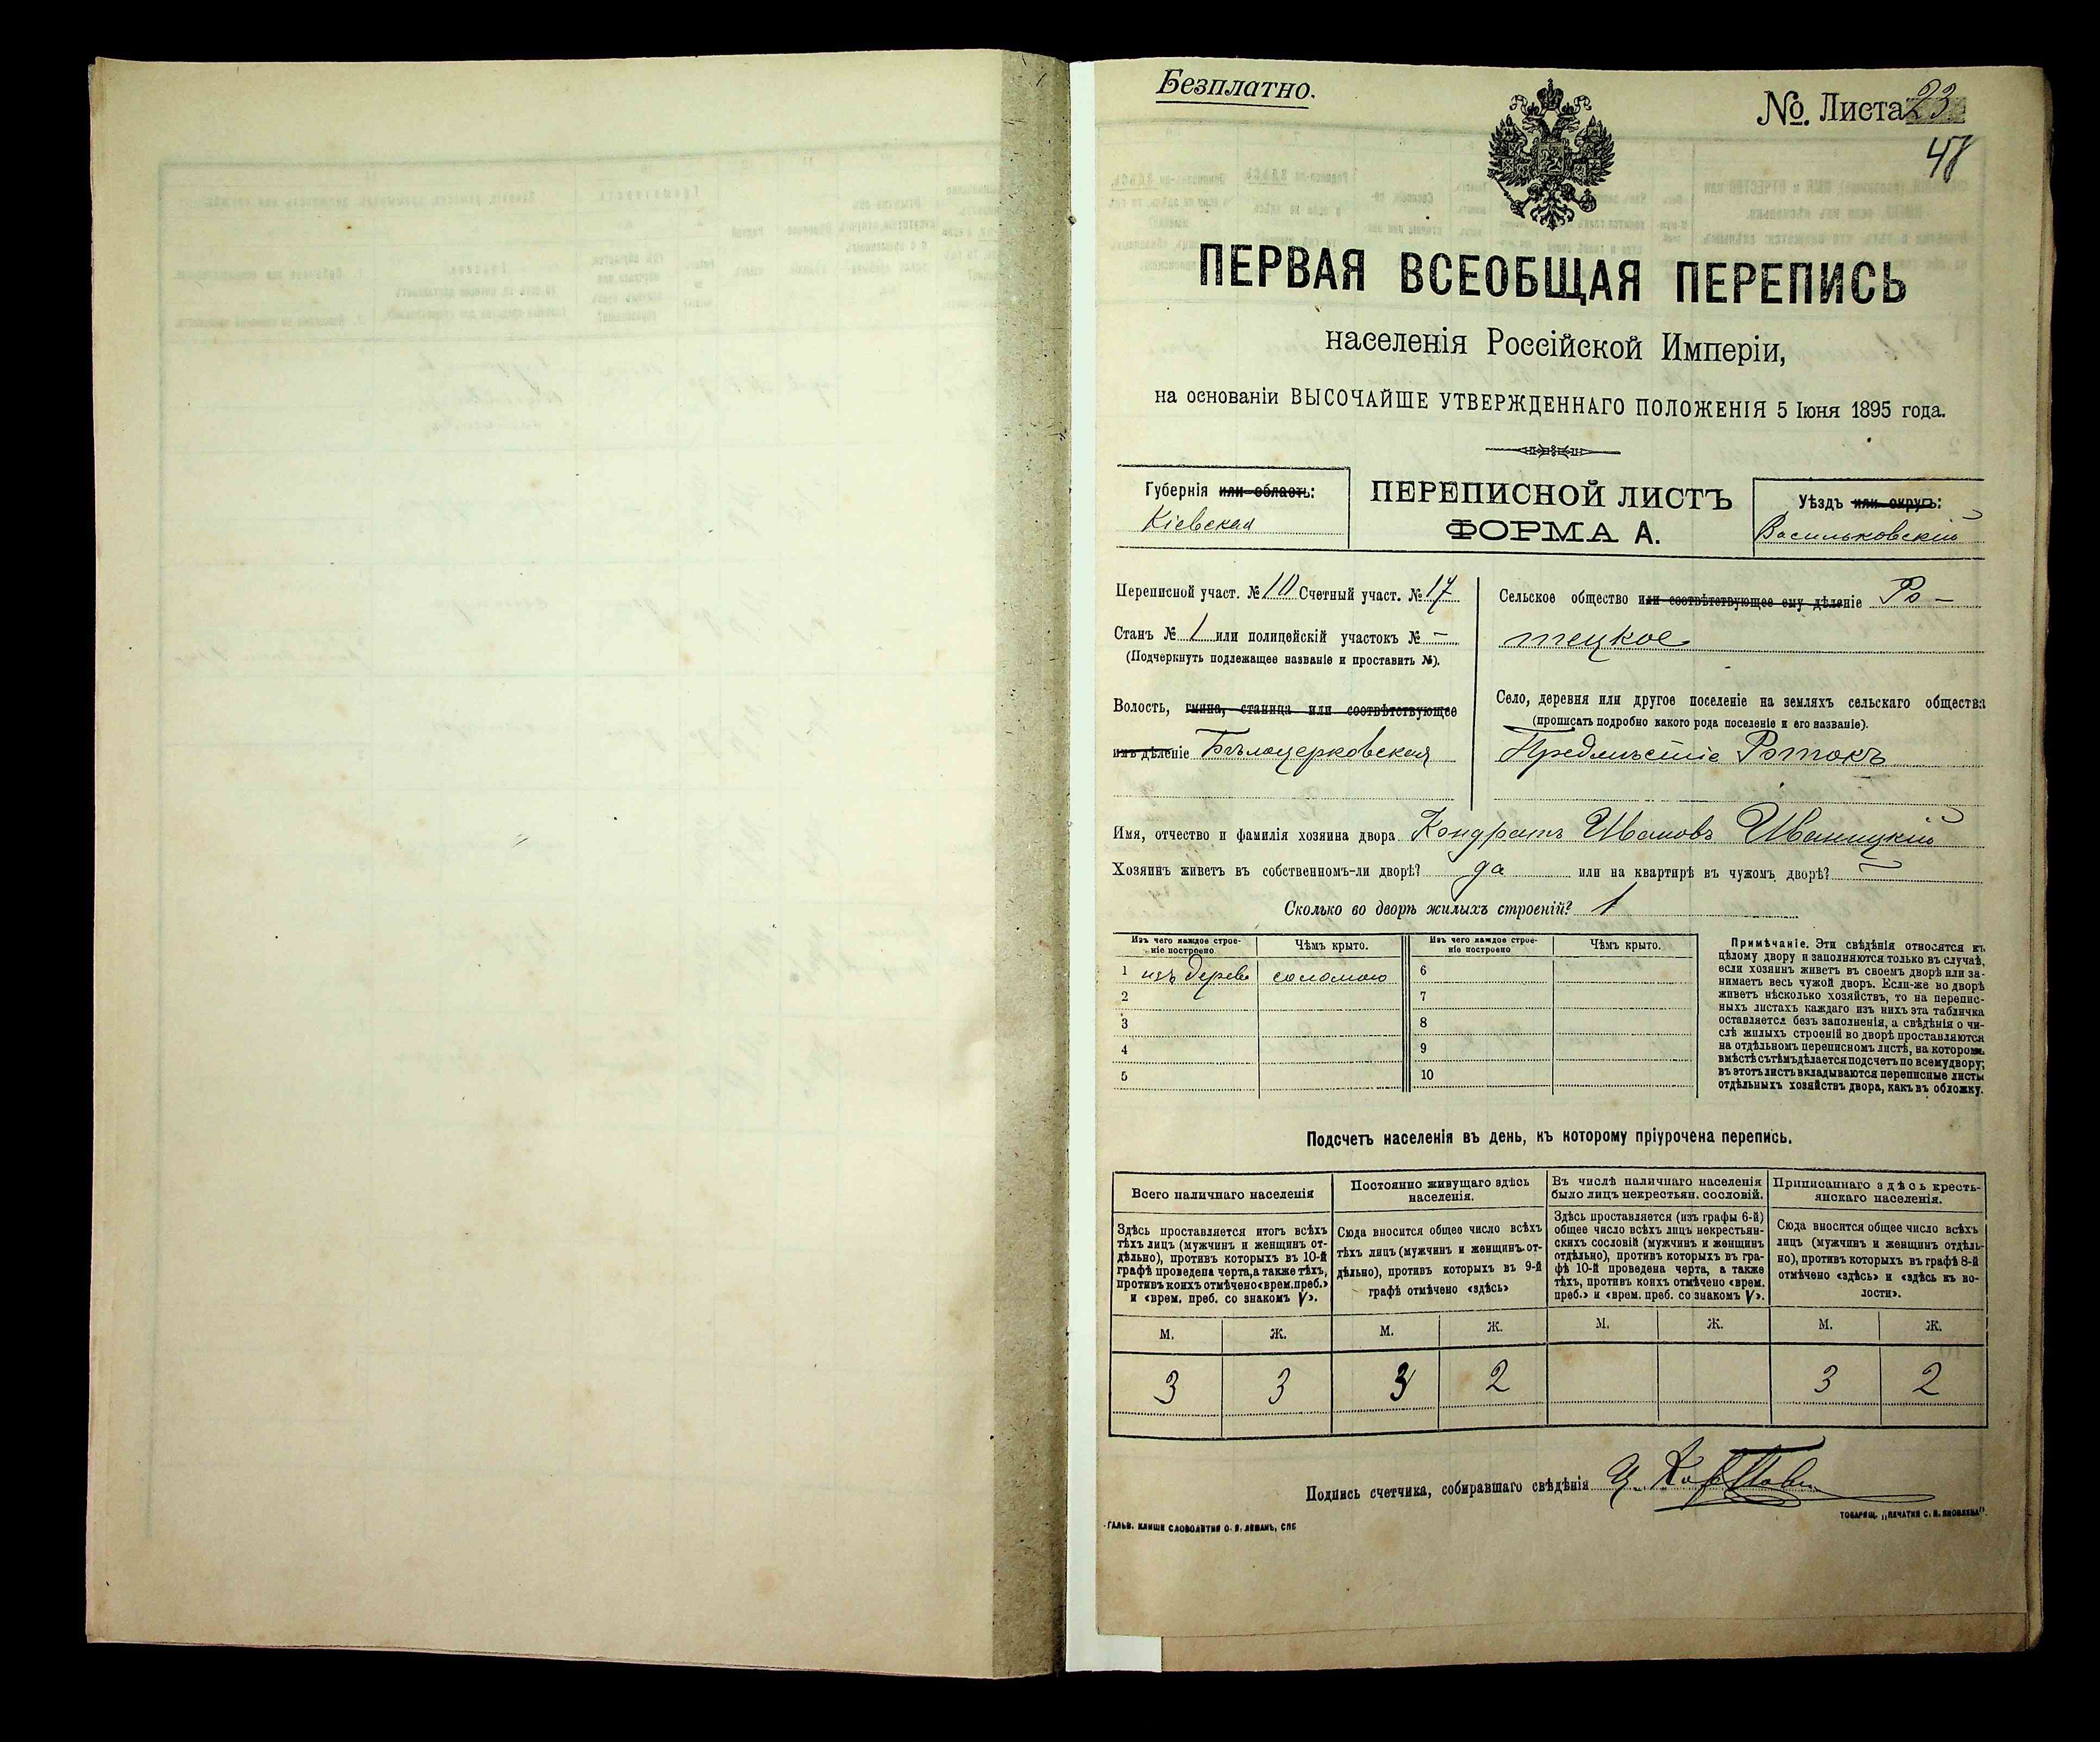 Безплатно.
№. Листа 23
48
ПЕРВАЯ ВСЕОБЩАЯ ПЕРЕПИСЬ
населенія Россійской Имперіи,
на основаніи ВЫСОЧАЙШЕ УТВЕРЖДЕННАГО ПОЛОЖЕНІЯ 5 Іюня 1895 года.
Губернія или область:
Кіевская
ПЕРЕПИСНОЙ ЛИСТЪ
ФОРМА А.
Уѣздъ или округъ:
Васильковскій
Переписной участ. № 10 Счетный участ. № 17
Станъ № 1 или полицейскій участокъ № —
(Подчеркнуть подлежащее названіе и проставить №).
Волость, гмина, станица или соотвѣтствующее
имъ дѣленіе Бѣлоцерковская
Сельское общество или соотвѣтствующее ему дѣленіе Ро-
тецкое
Село, деревня или другое поселеніе на земляхъ сельскаго общества
(прописать подробно какого рода поселеніе и его названіе).
Предмѣстіе Ротокъ
Имя, отчество и фамилія хозяина двора Кондратъ Ивановъ Иваницкій
Хозяинъ живетъ въ собственномъ-ли дворѣ? да или на квартирѣ въ чужомъ дворѣ? —
Сколько во дворѣ жилыхъ строеній? 1
Изъ чего каждое строе-
ніе построено
Чѣмъ крыто.
Изъ чего каждое строе-
ніе построено
Чѣмъ крыто.
1 изъ дерева соломою 6
2 7
3 8
4 9
5 10
Примѣчаніе. Эти свѣдѣнія относятся къ
цѣлому двору и заполняются только въ случаѣ,
если хозяинъ живетъ въ своемъ дворѣ или за-
нимаетъ весь чужой дворъ. Если-же во дворѣ
живетъ нѣсколько хозяйствъ, то на перепис-
ныхъ листахъ каждаго изъ нихъ эта табличка
оставляется безъ заполненія, а свѣдѣнія о чи-
слѣ жилыхъ строеній во дворѣ проставляются
на отдѣльномъ переписномъ листѣ, на которомъ
вмѣстѣ съ тѣмъ дѣлается подсчетъ по всему двору;
въ этотъ листъ вкладываются переписные листы
отдѣльныхъ хозяйствъ двора, какъ въ обложку.
Подсчетъ населенія въ день, къ которому пріурочена перепись.
Всего наличнаго населенія
Здѣсь проставляется итогъ всѣхъ
тѣхъ лицъ (мужчинъ и женщинъ от-
дѣльно), противъ которыхъ въ 10-й
графѣ проведена черта, а также тѣхъ,
противъ коихъ отмѣчено «врем. преб.»
и «врем. преб. со знакомъ V».
Постоянно живущаго здѣсь
населенія.
Сюда вносится общее число всѣхъ
тѣхъ лицъ (мужчинъ и женщинъ от-
дѣльно), противъ которыхъ въ 9-й
графѣ отмѣчено «здѣсь»
Въ числѣ наличнаго населенія
было лицъ некрестьян. сословій.
Здѣсь проставляется (изъ графы 6-й)
общее число всѣхъ лицъ некрестьян-
скихъ сословій (мужчинъ и женщинъ
отдѣльно), противъ которыхъ въ гра-
фѣ 10-й проведена черта, а также
тѣхъ, противъ коихъ отмѣчено «врем.
преб.» и «врем. преб. со знакомъ V».
Приписаннаго здѣсь кресть-
янскаго населенія.
Сюда вносится общее число всѣхъ
лицъ (мужчинъ и женщинъ отдѣль-
но), противъ которыхъ въ графѣ 8-й
отмѣчено «здѣсь» и «здѣсь къ во-
лости».
М. Ж. М. Ж. М. Ж. М. Ж.
3 3 3 2 3 2
Подпись счетчика, собиравшаго свѣдѣнія
ГАЛЬВ. КЛИШЕ СЛОВОЛИТНИ О. И. ЛЕМАНЪ, СПБ
ТОВАРИЩ. „ПЕЧАТНЯ С. П. ЯКОВЛЕВА".